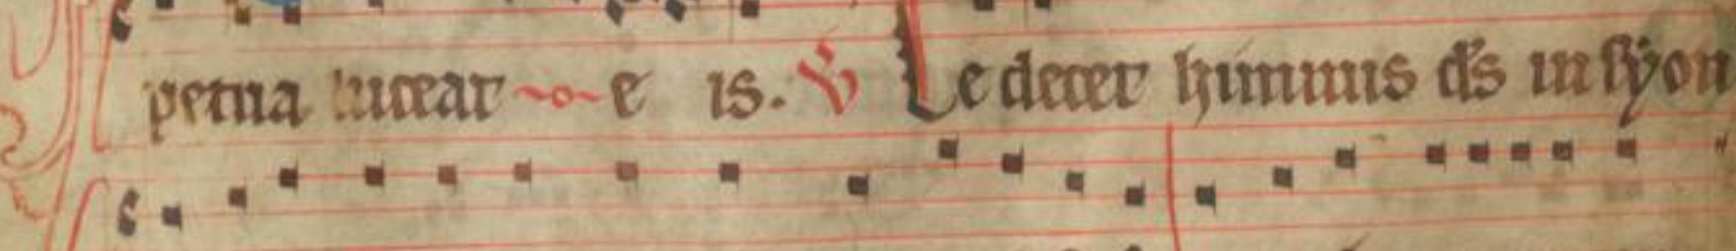 petua luceat e is. ℣ Te decet himnus ds in syon